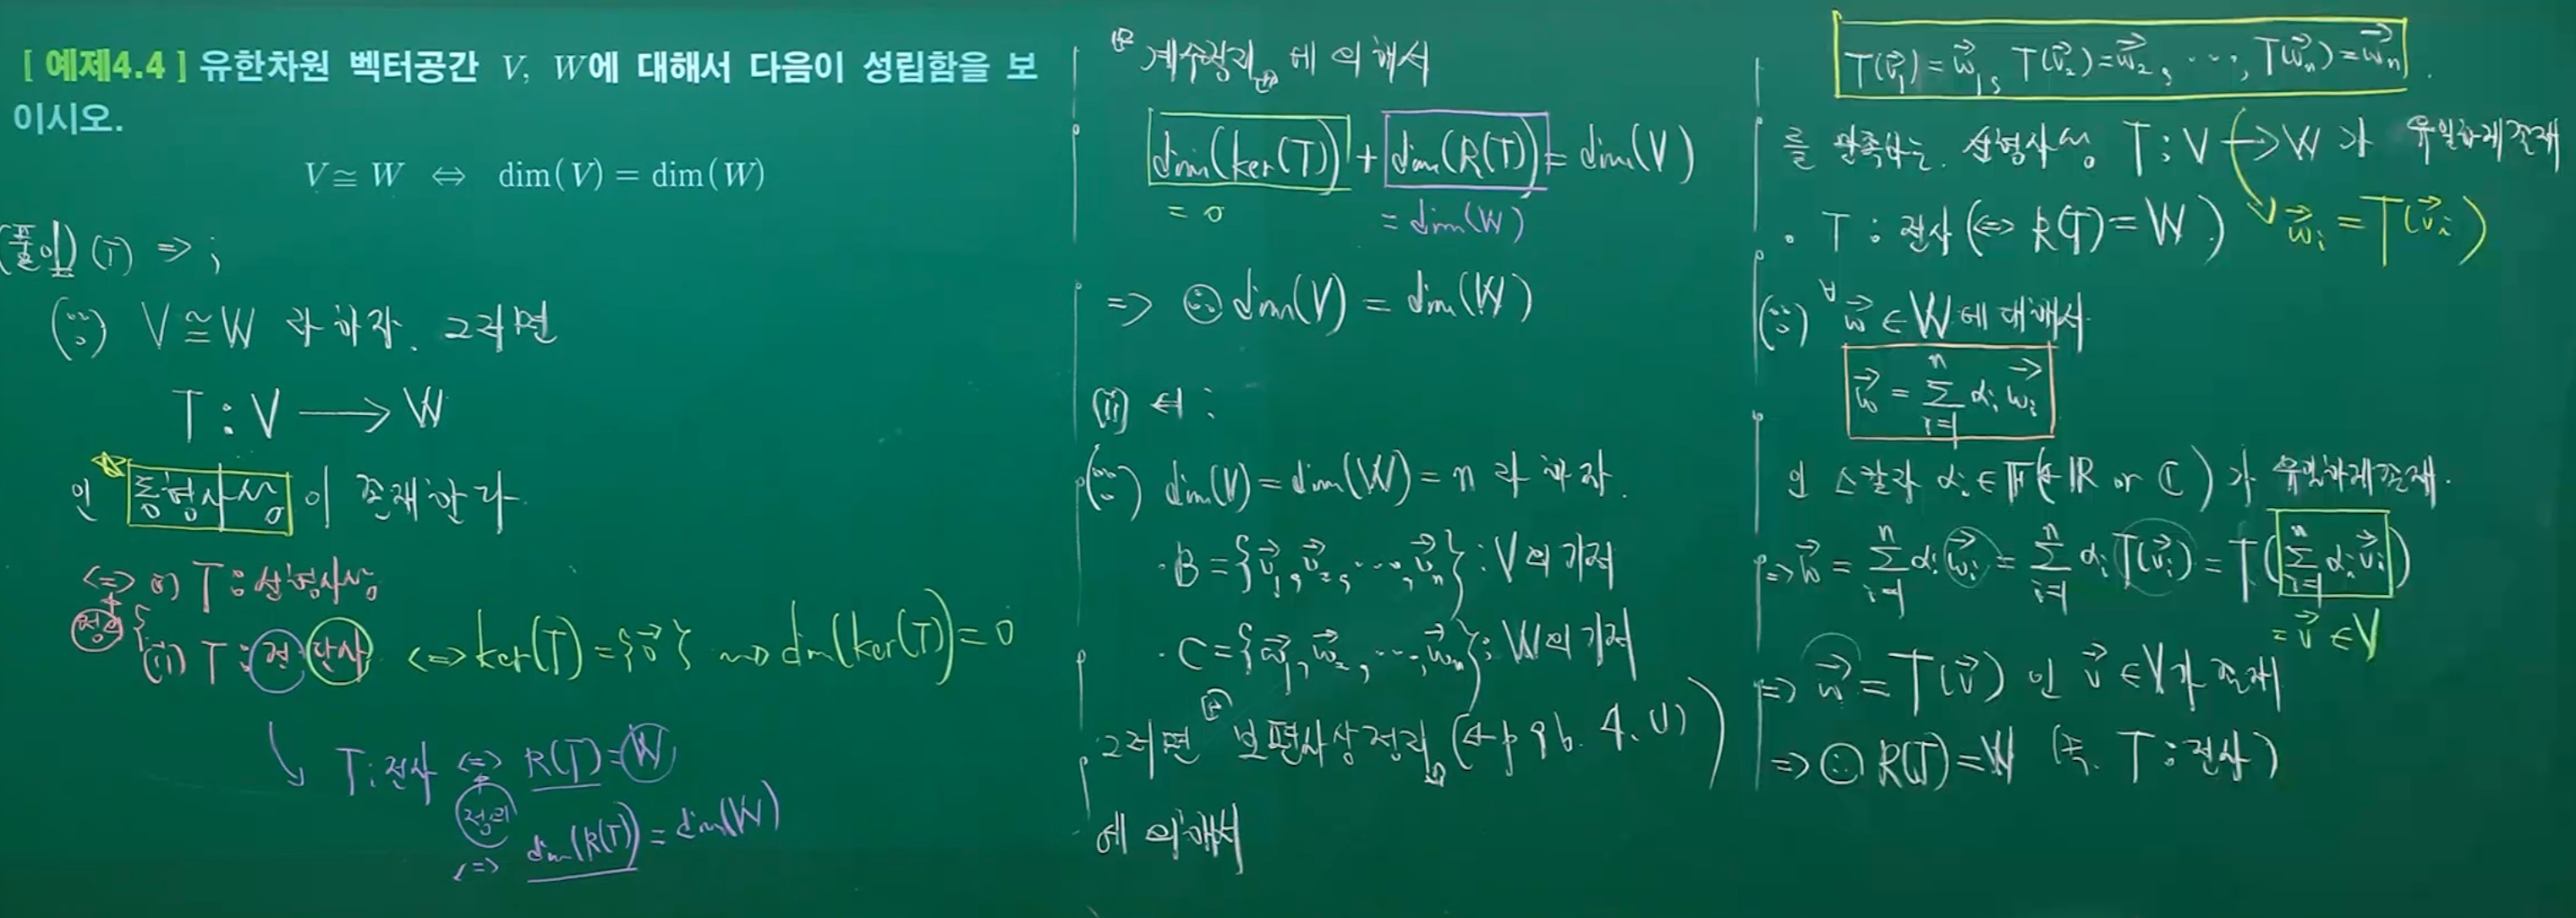 [ 예제4.4 ] 유한차원 벡터공간 V, W에 대해서 다음이 성립함을 보
이시오.
V ≅ W ⇔ dim(V) = dim(W)
(풀이) (i) ⇒ ;
(∵) V ≅ W 라 하자. 그러면
T : V → W
인 동형사상 이 존재한다
⇔ (i) T : 선형사상
정의
(ii) T : 전단사 ⇔ ker(T) = {0⃗} ⇝ dim(ker(T)) = 0
T : 전사 ⇔ R(T) = W
정리
⇔ dim(R(T)) = dim(W)
계수정리 에 의해서
dim(ker(T)) + dim(R(T)) = dim(V)
= 0 = dim(W)
⇒ ∴ dim(V) = dim(W)
(ii) ⇐ :
(∵) dim(V) = dim(W) = n 라 하자.
· B = {v⃗₁, v⃗₂, ⋯, v⃗ₙ} : V의 기저
· C = {w⃗₁, w⃗₂, ⋯, w⃗ₙ} : W의 기저
그러면 보편사상정리 (← p 96. 4.1)
에 의해서
T(v⃗₁) = w⃗₁, T(v⃗₂) = w⃗₂, ⋯, T(v⃗ₙ) = w⃗ₙ.
를 만족하는 선형사상 T : V → W 가 유일하게 존재
· T : 전사 (⇔ R(T) = W) w⃗ᵢ = T(v⃗ᵢ)
(∵) ∀w⃗ ∈ W 에 대해서
w⃗ = Σᵢ₌₁ⁿ αᵢ w⃗ᵢ
인 스칼라 αᵢ ∈ F (← R or C) 가 유일하게 존재.
⇒ w⃗ = Σᵢ₌₁ⁿ αᵢ w⃗ᵢ = Σᵢ₌₁ⁿ αᵢ T(v⃗ᵢ) = T(Σᵢ₌₁ⁿ αᵢ v⃗ᵢ)
= v⃗ ∈ V
⇒ w⃗ = T(v⃗) 인 v⃗ ∈ V가 존재
⇒ ∴ R(T) = W (즉, T : 전사)